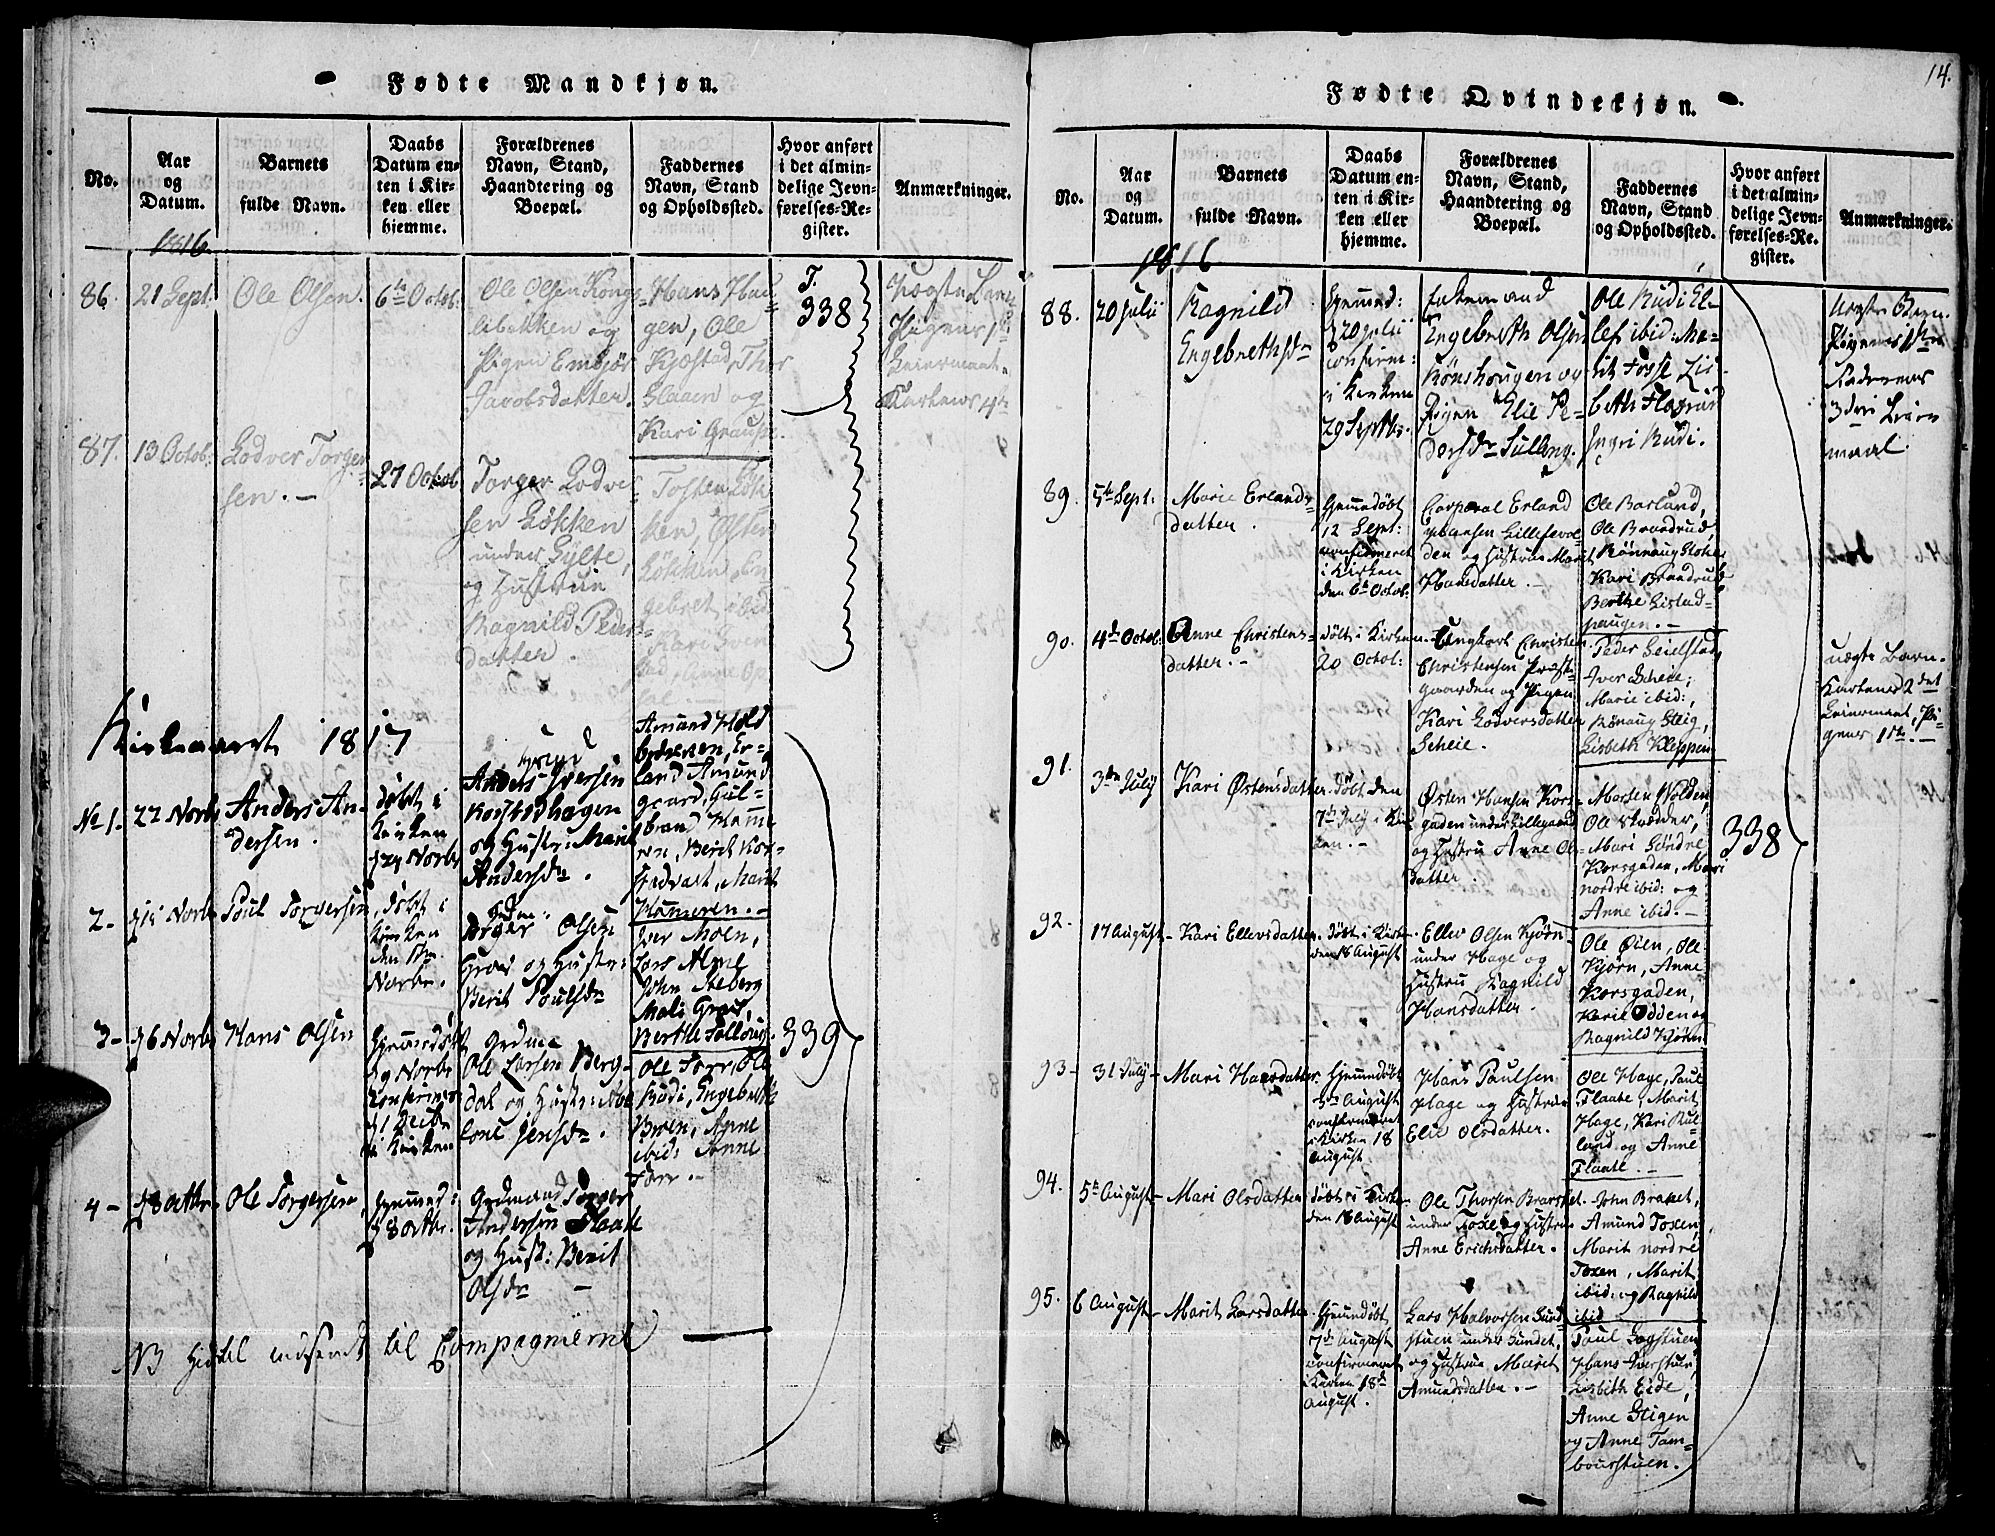 Fødte Mandkjøn.
No.
Aar
og
Datum.
Barnets
fulde Navn.
Daabs
Datum en-
ten i Kir-
ken eller
hjemme.
Forældrenes
Navn, Stand,
Haandtering og
Boepæl.
Faddernes
Navn, Stand
og Opholdssted.
Hvor anført
i det almin-
delige Jevn-
førelses-Re-
gister.
Anmærkninger.
1816
86.
21 Sept.
Ole Olsen.
6te Octob.
Ole Olsen Kongs-
libakken og
Pigen Embjør
Jacobsdatter.
Hans Hau-
gen, Ole
Kjæstad, Thor
Slaaen og
Kari Graupe.
T.
338
Uægte Barn
Pigens 1te
Leiermaal.
Karlens 4te
87.
13 Octob.
Lodver Torger-
sen. —
27 Octob.
Torger Lodve-
sen Løkken
under Sylte,
og Hustrue
Ragnild Peders-
datter.
Tosten Løk-
ken, Østen
Løkken, En-
gebret ibid
Kari
Kirkeaaret 1817
No 1.
22 Novbr
Anders An-
dersen.
døbt i
Kirken
d 24 Novbr
Anders Iversen
og Hustr: Marit
Andersdr.
Amund
land Amund
gaard, Gul-
brand Hame-
ren, Berit Kor-
Marit
Hameren. —
2-
d 15 Novbr
Poul Torgersen,
døbt i
Kirken
den
Novbr.
Torger Olsen
Grav og Hustr:
Berit Poulsdr
Iver Moen,
Lars Alme
John Steberg
Mali Grav,
Berthe
3-
d 6 Novbr
Hans Olsen
Hjemmedøbt
d 9 Novbr
Konfirm:
d 1 Decbr
i Kirken
Ole Larsen Berg-
dal og Hustr:
Jensdr.
Ole Forr, Ole
Rudi, Engebreth
Broen, Anne
ibid: Anne
Forr. —
339
4-
d 8 octbr
Ole Torgersen,
Hjemmed:
d 8 octbr.
Grdmand Torger
Andersen Flaate
og Hust: Berit
Olsdr —
NB Hidtil indsendt til Compagnierne
14.
Fødte Qvindekjøn.
No.
Aar
og
Datum.
Barnets
fulde Navn.
Daabs
Datum en-
ten i Kir-
ken eller
hjemme.
Forældrenes
Navn, Stand,
Haandtering og
Boepæl.
Faddernes
Navn, Stand
og Opholdssted.
Hvor anført
i det almin-
delige Jevn-
førelses-Re-
gister.
Anmærkninger.
1816
88.
20 Julii
Ragnild
Engebrethsdr
Hjemmed:
d 20 Julii
confirm:
i Kirken
29 Septbr.
Enkemand
Engebreth Olsen
Rønshougen og
Pigen Elie Pe-
dersdr Sulleng.
Ole Rudi El-
lef ibid: Ma-
rit Fosse Lis-
beth Flasrud
Ingri Rudi.
Uægte Barn.
Pigens 1ste
Faderens
3die Leier
maal.
89.
5te Sept:
Marie Erlands-
datter.
Hjemmedøbt
12 Sept:
confirmeret
i Kirken
den 6te Octob:
Corporal Erland
Hansen Lillefevel-
den og Hustrue Marit
Hansdatter. —
Ole Barlund,
Ole Brandrud,
Rønnaug Stoke
Kari Brandrud
Berthe Listad-
haugen. —
90.
4de Octob.
Anne Christens-
datter. —
døbt i Kirken
20 Octob:
Ungkarl Christen
Christensen Præst-
gaarden og Pigen
Kari Lodversdatter
Scheie.
Peder Leielstad,
Iver Scheie,
Marie ibid:,
Rønaug Steig,
Lisbeth Kleppen
uægte Barn.
Karlens 2det
Leiermaal, Pi-
gens 1ste. —
91.
3die July
Kari Østensdatter.
døbt den
7de July i Kir-
ken. —
Østen Hansen Kors-
gaden under Lillegaard
og Hustru Anne Ols-
datter.
Morten Volden,
Ole Skrædder,
Mari Søndre
Korsgaden, Mari
nordre ibid: og
Anne ibid. —
338
92.
17 August
Kari Ellevsdatter.
døbt i Kirken
den 18 August
Ellev Olsen Kjørn
under Hage og
Hustru Ragnild
Hansdatter.
Ole Øien, Ole
Kjørn, Anne
Korsgaden,
Karie Odden og
Ragnild Kjørn
93-
31 July
Mari Hansdatter.
Hjemmedøbt
5te August
confirmeret
i Kirken 18
August.
Hans Paulsen
Hage og Hustrue
Elie Olsdatter.
Ole Hage, Paul
Flaate, Marit
Hage, Kari Rul-
land og Anne
Flaate. —
94.
5te August
Mari Olsdatter
døbt i Kirken
den 18 August
Ole Thorsen Brarket
under Toxe og Hustrue
Anne Erichsdatter.
John Braket,
Amund Toxen,
Marit nordre
Toxen, Marit
ibid: og Ragnild
ibid
95.
6 August
Marit Larsdatter.
Hjemmedøbt
7de August
confirmeret
i Kirken 18de
August.
Lars Halvorsen Sund-
stuen under Sundet,
og Hustrue Marit
Amundsdatter. —
Paul Bogstuen,
Hans Iverstuen,
Lisbeth Eide,
Anne Stigen
og Anne Tam-
bourstuen.